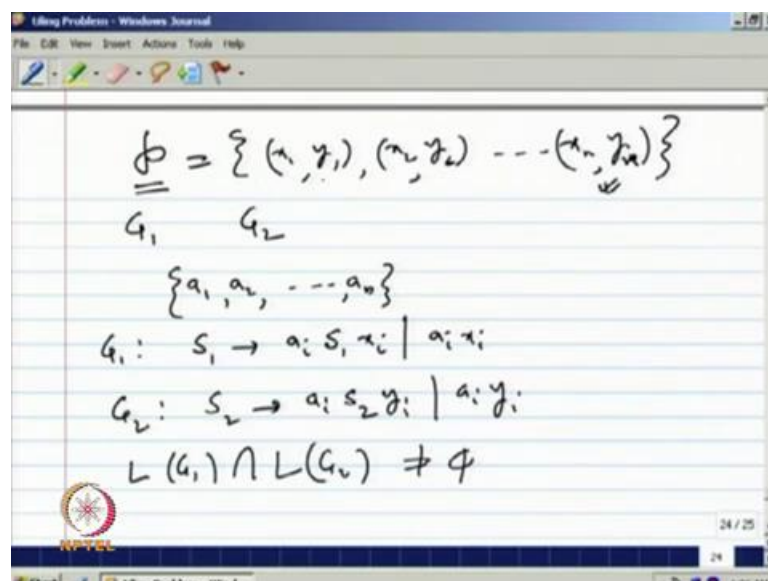 tiling Problem - Windows Journal
File Edit View Insert Actions Tools Help
℘ = { (x₁, y₁), (x₂, y₂) ---- (xₙ, yₙ) }
G₁ G₂
{a₁, a₂, ----, aₙ}
G₁: S₁ → aᵢ S₁ xᵢ | aᵢ xᵢ
G₂: S₂ → aᵢ S₂ yᵢ | aᵢ yᵢ
L (G₁) ∩ L(G₂) ≠ φ
NPTEL
24 / 25
24